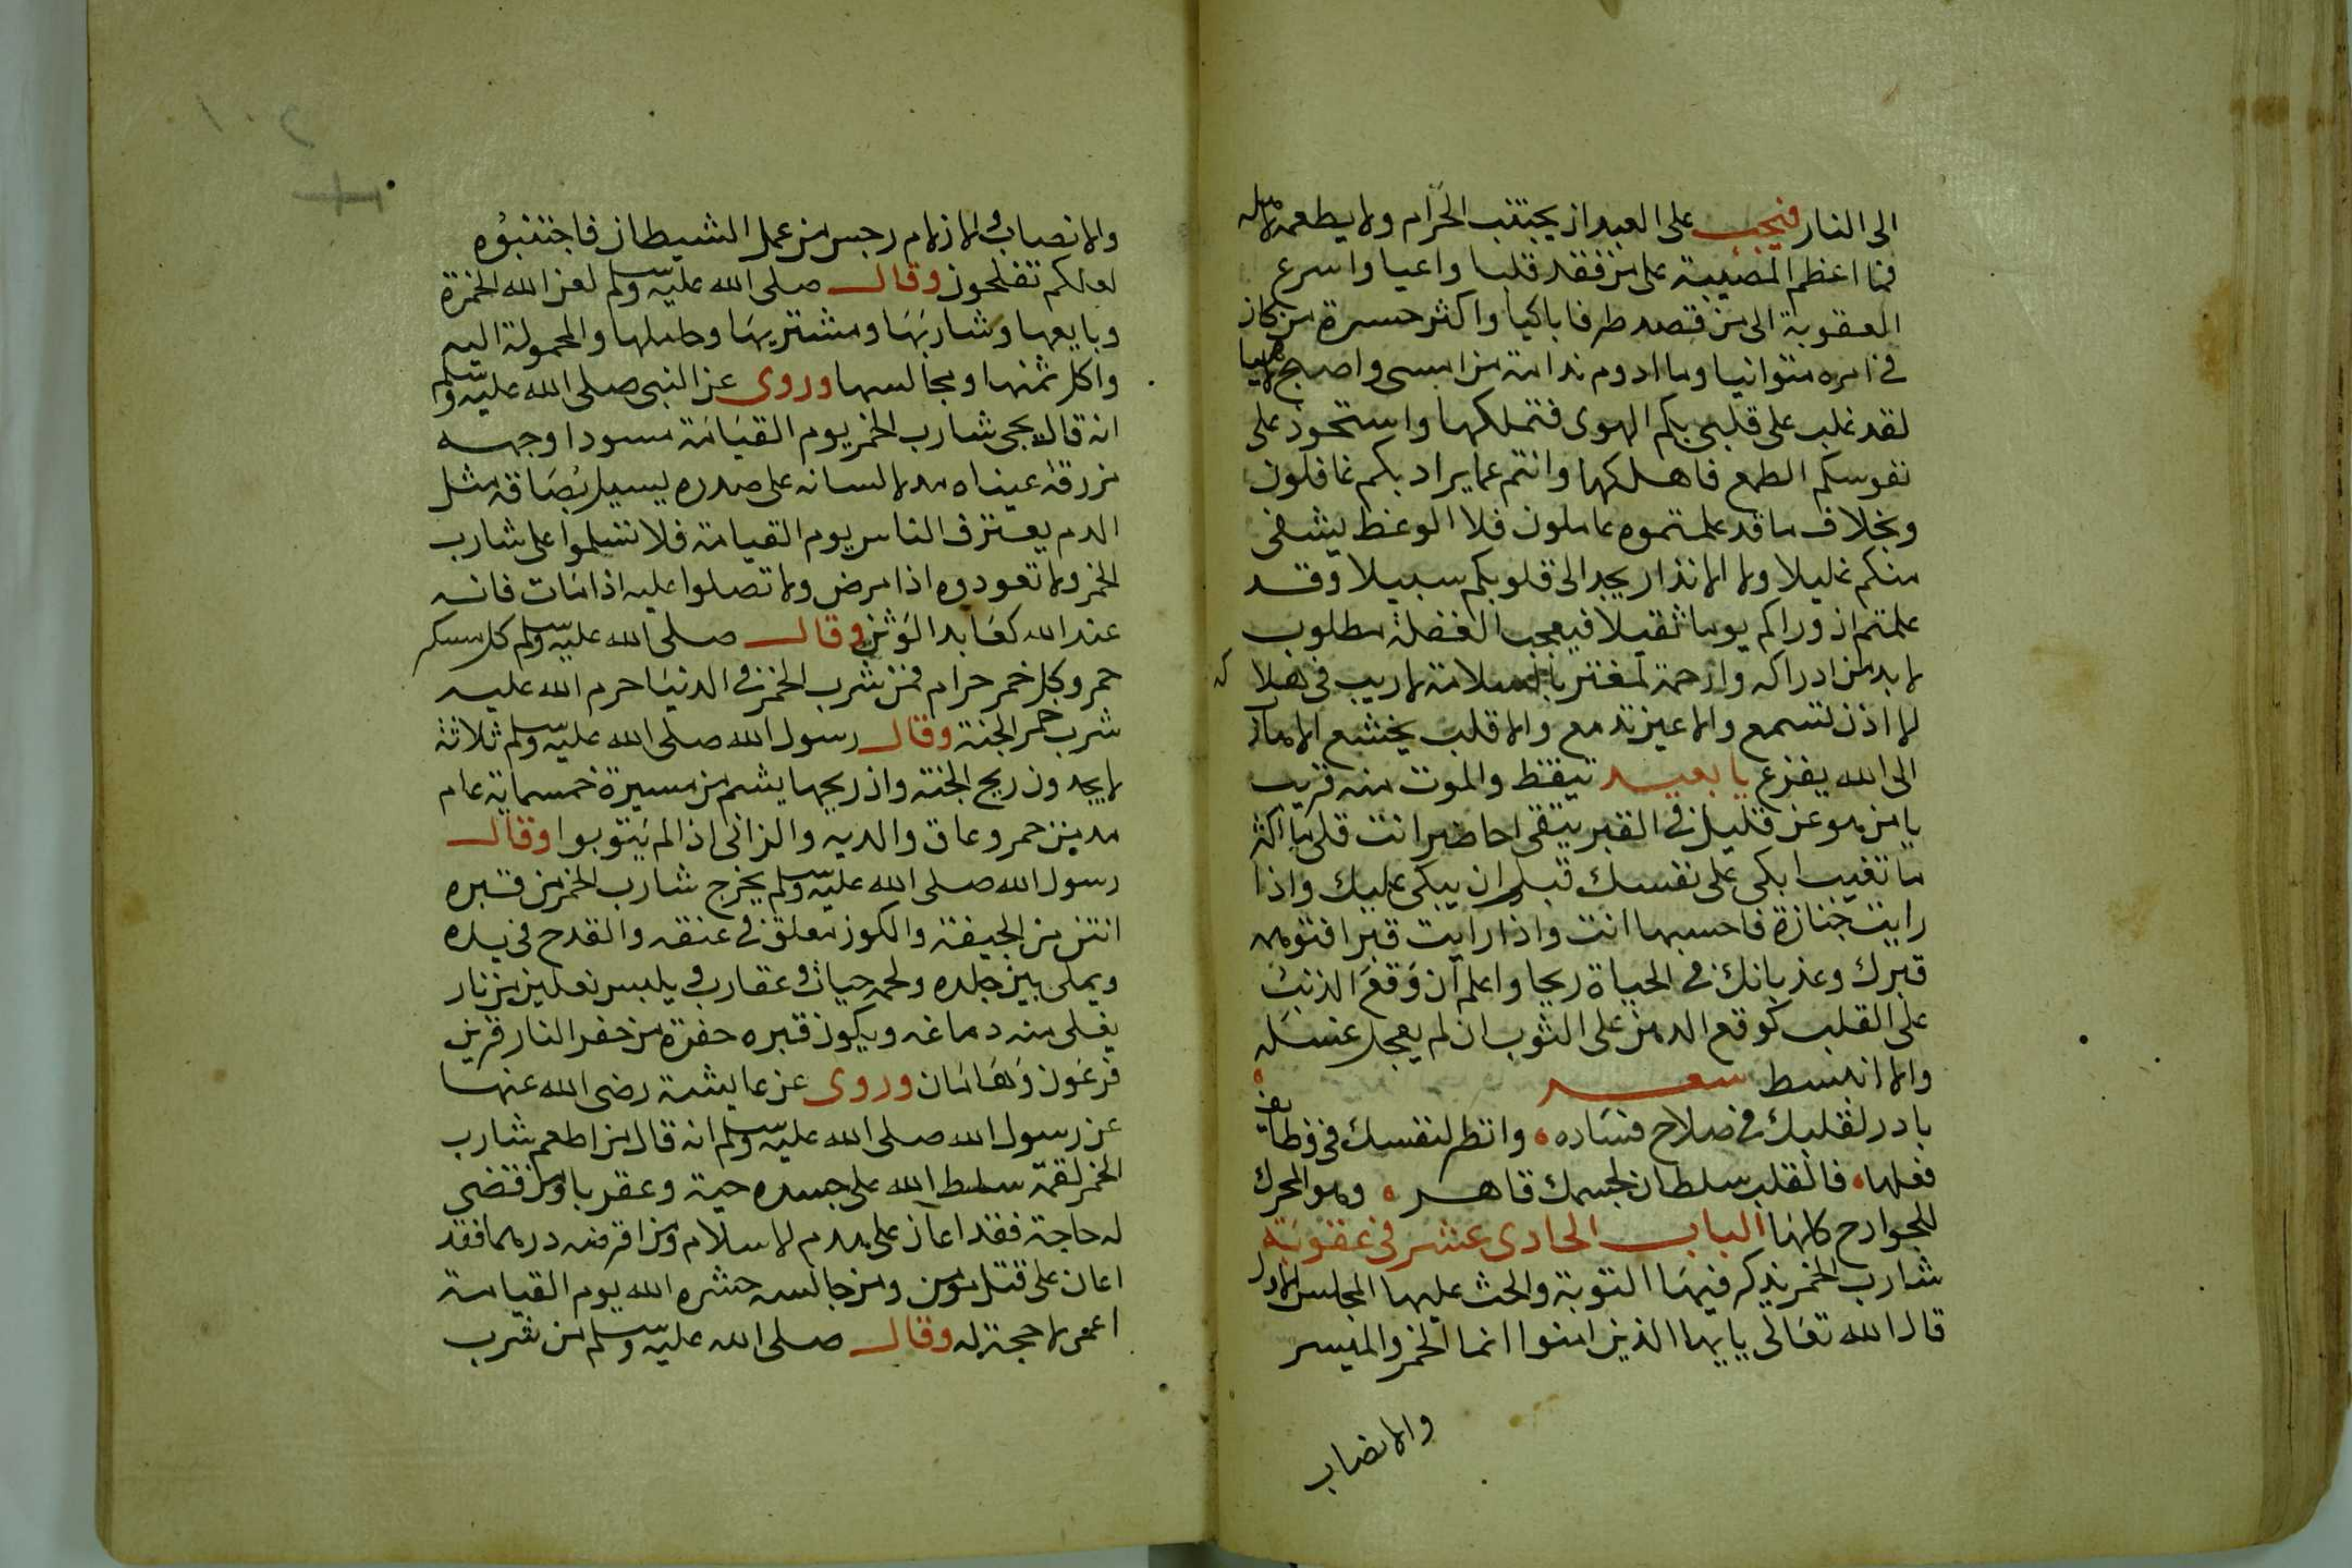 الى النار فيجب على العبد ان يجتنب الحرام ولا يطعمه لاهله
فما اعظم المصيبة على من فقد قلبا واعيا واسرع
العقوبة الى من قصد طرفا باكيا واكثر حسرة من كان
في امره متوانيا وما ادوم ندامة من امسى واصبح لاهيا
لقد غلب على قلبى بكم الهوى فتملكها واستحوذ على
نفوسكم الطمع فاهلكها وانتم عما يراد بكم غافلون
وبخلاف ما قد علمتموه عاملون فلا الوعظ يشفى
منكم غليلا ولا الانذار يجد الى قلوبكم سبيلا وقد
علمتم ان وراكم يوما ثقيلا فيعجب الغفلة مطلوب
لا بد من ادراكه وارحمة لمغتر بالسلامة لا ريب في هلاكه
لا اذن تسمع والا عين تدمع والا قلب يخشع الا مان
الى الله يفزع يا بعيد تيقظ والموت منه قريب
يا من هو عن قليل في القبر يبقى احاضر انت قلى ما اكثر
ما تغيب ابكى على نفسك قبل ان يبكى عليك واذا
رايت جنازة فاحسبها انت واذا رايت قبرا فتوهمه
قبرك وعد بانك في الحياة ربحا واعلم ان وقع الذنب
على القلب كوقع الدهن على الثوب ان لم يعجل غسله
والا انبسط شعر
بادر لقلبك في صلاح فساده ، وانظر لنفسك في وظايف
فعلها ، فالقلب سلطان لجسمك قاهر ، وهو المحرك
للجوارح كلها الباب الحادى عشر في عقوبة
شارب الخمر يذكر فيها التوبة والحث عليها المجلس الاول
قال الله تعالى يا يها الذين امنوا انما الخمر والميسر
والانصاب
والانصاب والازلام رجس من عمل الشيطان فاجتنبوه
لعلكم تفلحون وقال صلى الله عليه وسلم لعن الله الخمرة
وبايعها وشاربها ومشتريها وحاملها والمحمولة اليه
واكل ثمنها ومجالسها وروى عن النبى صلى الله عليه وسلم
انه قال يجى شارب الخمر يوم القيامة مسودا وجهه
مزرقة عيناه مدلا لسانه على صدره يسيل بصاقه مثل
الدم يعترف الناس يوم القيامة فلا تسلموا على شارب
الخمر ولا تعودوه اذا مرض ولا تصلوا عليه اذا مات فانه
عند الله كعابد الوثن وقال صلى الله عليه وسلم كل مسكر
خمر وكل خمر حرام فمن شرب الخمر في الدنيا حرم الله عليه
شرب خمر الجنة وقال رسول الله صلى الله عليه وسلم ثلاثة
لا يجدون ريح الجنة وان ريحها يشم من مسيرة خمسماية عام
مدمن خمر وعاق والديه والزانى اذا لم يتوبوا وقال
رسول الله صلى الله عليه وسلم يخرج شارب الخمر من قبره
انتن من الجيفة والكوز معلق في عنقه والقدح في يده
ويملى بين جلده ولحمه حيات وعقارب ويلبس نعلين من نار
يغلى منه دماغه ويكون قبره حفرة من حفر النار قرين
فرعون وهامان وروى عن عايشة رضى الله عنها
عن رسول الله صلى الله عليه وسلم انه قال من اطعم شارب
الخمر لقمة سلط الله على جسده حية وعقربا ومن قضى
له حاجة فقد اعان على هدم الاسلام ومن اقرضه درهما فقد
اعان على قتل مومن ومن جالسه حشره الله يوم القيامة
اعمى لا حجة له وقال صلى الله عليه وسلم من شرب